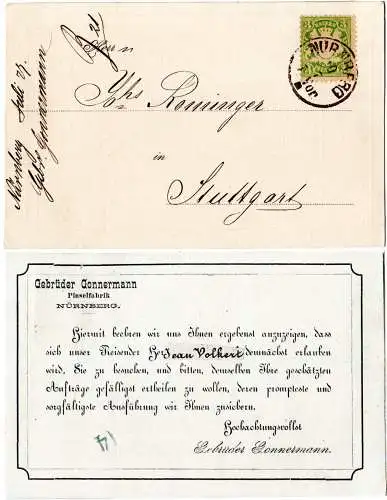 Nürnberg Juli 7/.
Gebr. Gonnermann
21
Herrn
Chs Rominger
in
Stuttgart
3
NÜRNBERG
Gebrüder Gonnermann
Pinselfabrik
NÜRNBERG.
Hiermit beehren wir uns Ihnen ergebenst anzuzeigen, dass
sich unser Reisender Hr Jean Volkert demnächst erlauben
wird, Sie zu besuchen, und bitten, demselben Ihre geschätzten
Aufträge gefälligst ertheilen zu wollen, deren prompteste und
sorgfältigste Ausführung wir Ihnen zusichern.
Hochachtungsvollst
Gebrüder Gonnermann.
14